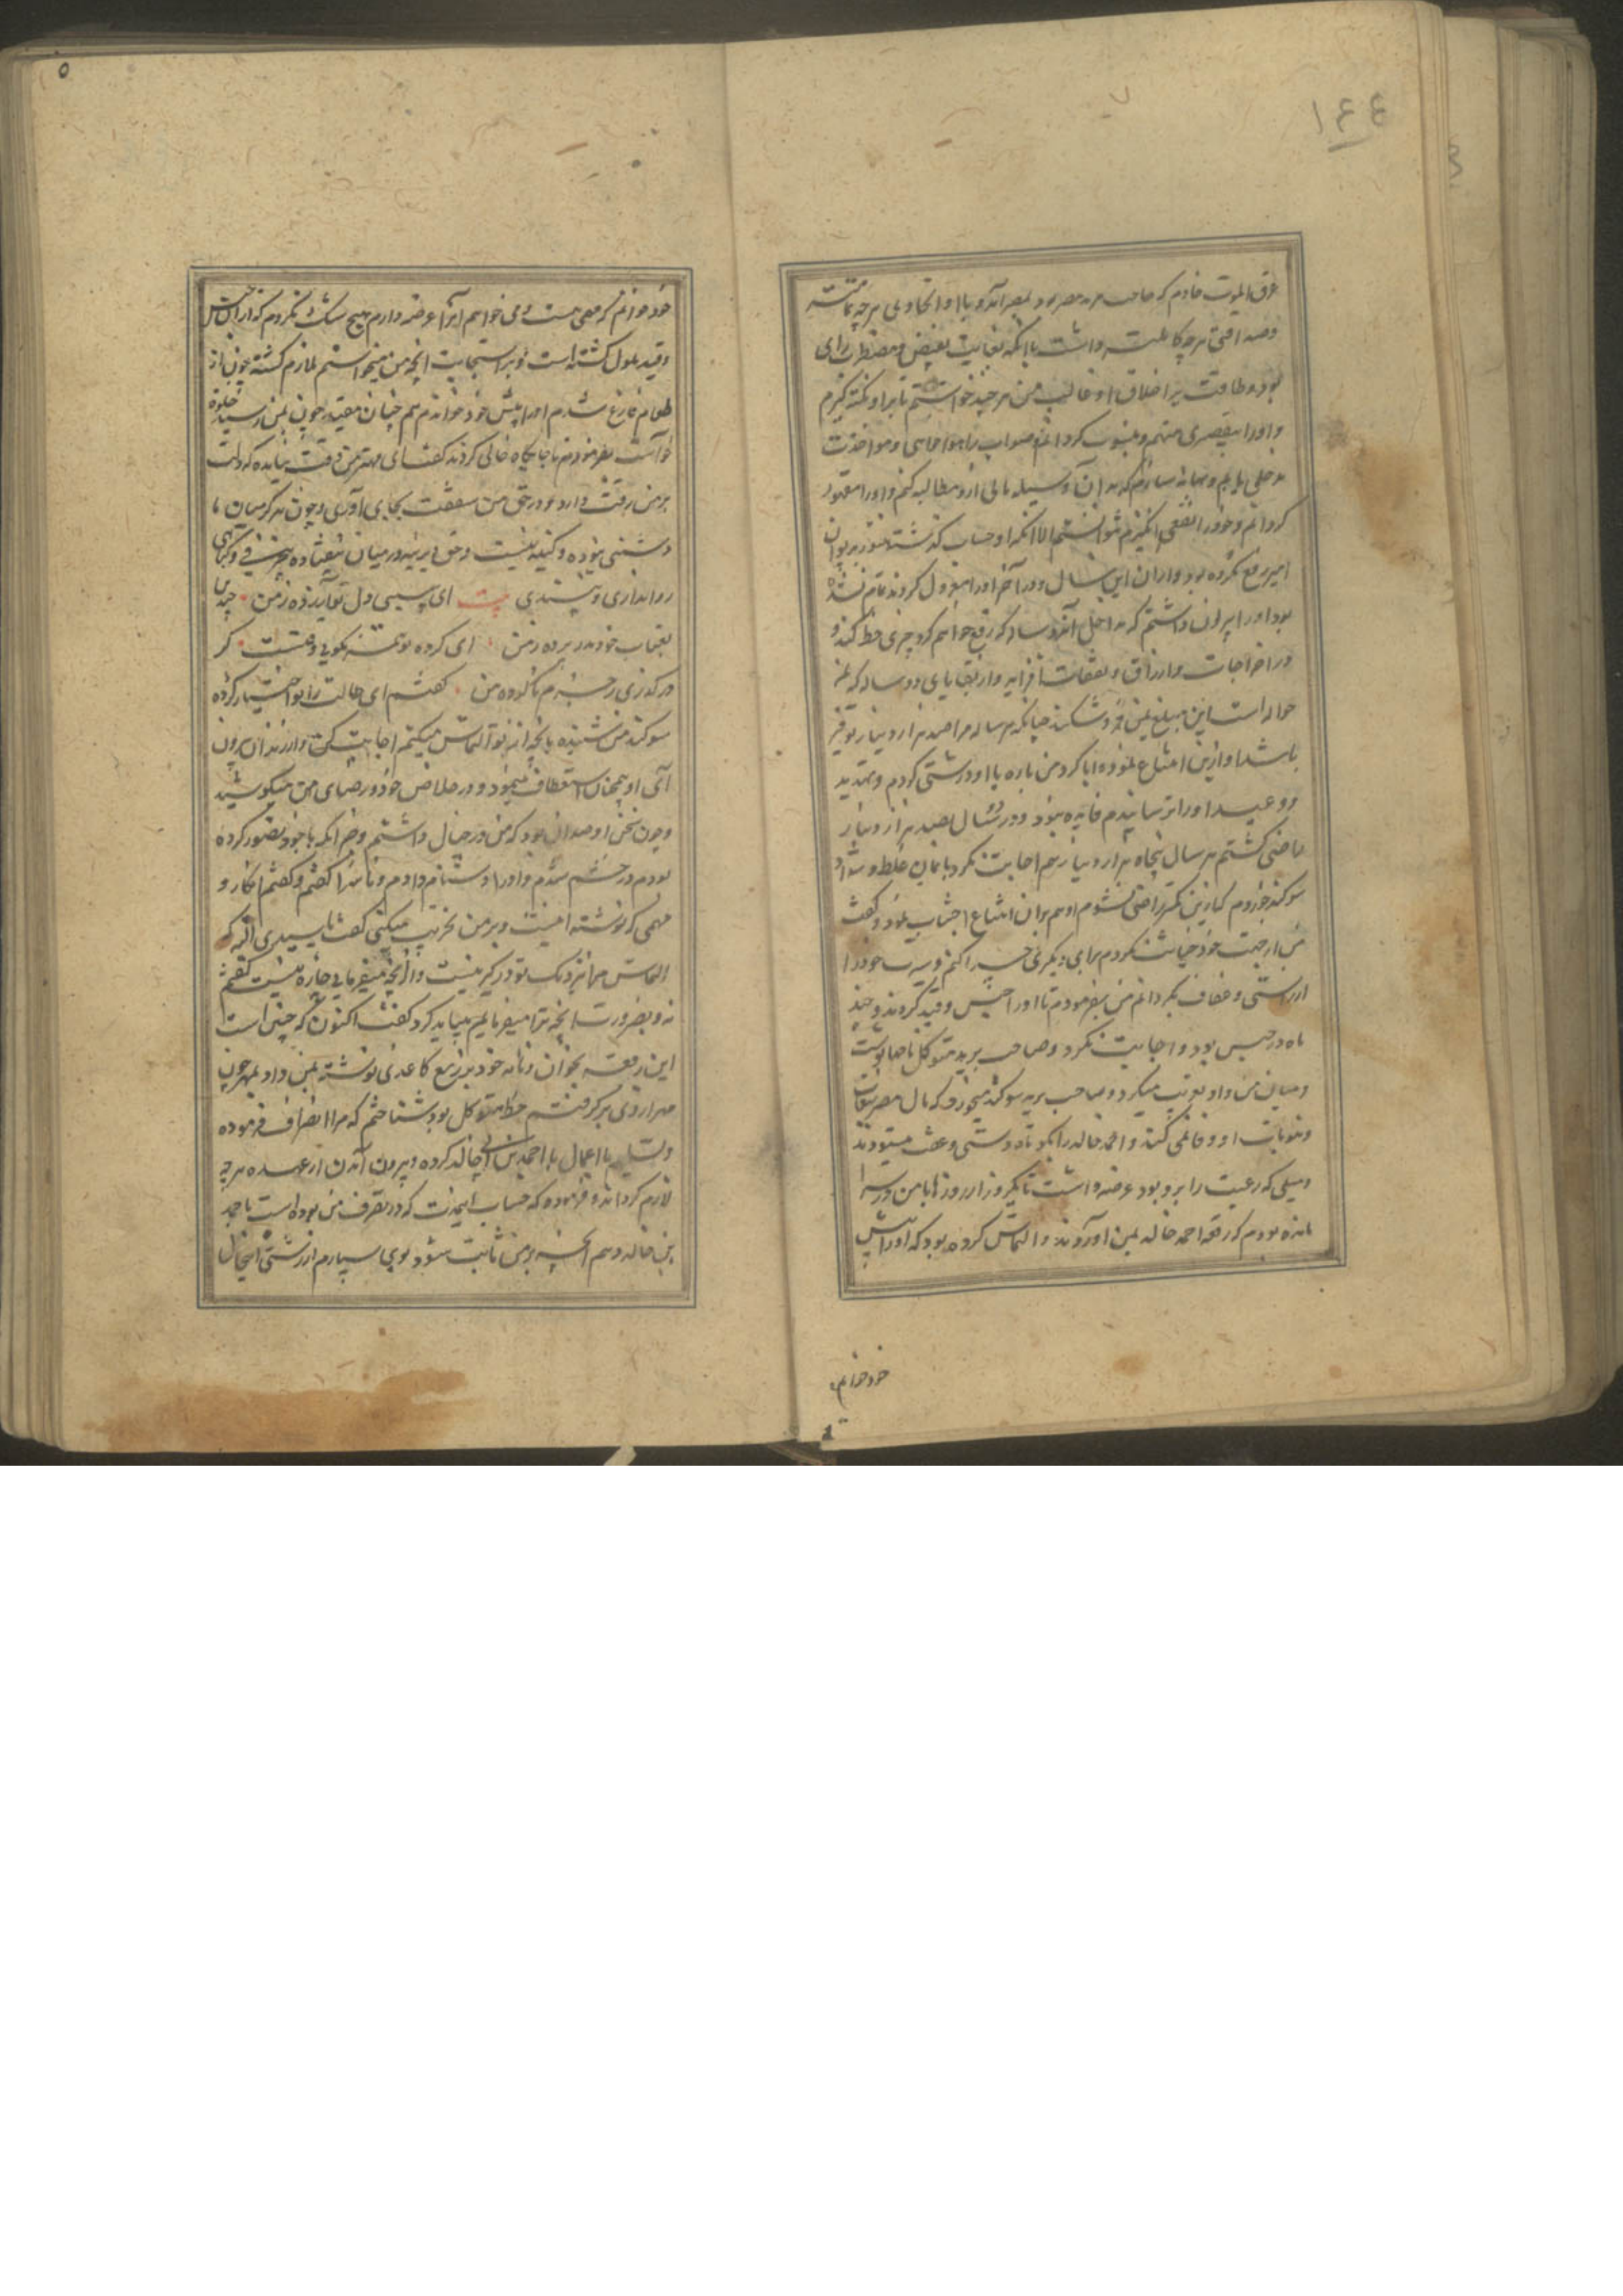 ١٤٤
عرق الموت خادم که صاحب برید مصر بود بمصر آمد و با او اتحادی هرچه تمامتر
و صداقتی هرچه کاملتر داشت با آنکه بغایت بغیض و مضطرب رای
بود و طاقت بر اخلاق او غالب من هرچند خواستم تا بر او نکته گیرم
و او را بتقصیری متهم و منسوب گردانم و صواب را
مدخلی یابم و بهانه سازم که بدان وسیله مالی ازو مطالبه کنم و او را مقهور
گردانم و خود را نفعی انگیزم نتوانستم الا آنکه او حساب گذشته هنوز بدیوان
امیر رفع نکرده بود و از آن این سال و در آخر او را معزول کردند تمام نشده
بود او را بر آن داشتم که مداخل آن دو ساله که رفع خواهم کرد چیزی حط کند و
در اخراجات و ارزاق و نفقات افزاید و از بقایای دو ساله که
حواله است این مبلغ بمن فرو شکند چنانکه هر ساله مرا صد هزار دینار توفیر
باشد او ازین امتناع نمود و ابا کرد من باره با او درشتی کردم و بتهدید
و وعید او را ترسانیدم فایده نبود و در دو سال بصد هزار دینار
راضی گشتم هر سال پنجاه هزار دینار هم اجابت نکرد بایمان غلاظ و شداد
سوگند خوردم که ازین کمتر راضی نشوم او هم بر آن امتناع اجتناب نمود و گفت
من از جهت خود خیانت نکردم برای دیگری چرا کنم و سیرت خود را
از راستی و عفاف نگردانم من بفرمودم تا او را حبس و قید کردند و چند
ماه در حبس بود و اجابت نکرد و صاحب برید متوکل نامها نوشت
و میان من و او تضریب میکرد و صاحب برید سوگند میخورد که مال مصر بنفقات
و مئونات او وفا نمی کند و احمد خالد را بکوتاه دستی و عفت میستودند
و میلی که رعیت را بدو بود عرضه داشت تا یکروز از روزها با من در سرا
مانده بودم که رقعه احمد خالد بمن آوردند و التماس کرده بود که او را پیش
خود خوانم
خود خوانم که مهمی هست و می خواهم آنرا عرضه دارم هیچ شک نکردم که از حبس
و قید ملول گشته است و بر استجابت آنچه من میخواستم ملازم گشته چون از
طعام فارغ شدم او را پیش خود خواندم همچنان مقید و چون بمن رسید خلوة
خواست بفرمودم تا جایگاه خالی کردند گفت ای مهتر من وقت نیامده که دلت
بر من رقت آرد و در حق من شفقت بجای آوری و چون هرگز میان ما
دشمنی نبوده و کینه نیست و حق دیرینه در میان نیفتاده چرا
رواداری و پسندی بیت ای سیمین دل تو آزرده ز من چندین
بعتاب خود مدر پرده ز من ای کرده تو همه نکویی و منت گر
درگذری ز جرم ناکرده من گفتم ای حالت را تو اختیار کرده
سوگند من شنیده بآنچه از تو التماس میکنم اجابت کن و از زندان بیرون
آی او همچنان استعطاف مینمود و در خلاص خود و رضای من میکوشید
و چون سخن او ضد آن بود که من در خیال داشتم و جز آنکه با خود تصور کرده
بودم در خشم شدم و او را دشنام دادم و ناسزا گفتم و گفتم کار و
مهمی که نوشته اینست و بر من تخریب میکنی گفت یا سیدی اگر چه
التماس مرا نزدیک تو در گیر نیست و از آنچه میفرمایی چاره نیست گفتم
نه و بضرورت آنچه ترا میفرمایم میباید کرد گفت اکنون که چنین است
این رقعه بخوان و نامه خود بدربع کاغذی نوشته بمن داد بمهر چون
مهر از وی برگرفتم خط متوکل بود بشناختم که مرا انصراف فرموده
و تسلیم با اعمال با احمد بن ابی خالد کرده و بیرون آمدن از عهده هرچه
لازم گرداند و فرموده که حساب این مدت که در تصرف من بوده است با احمد
بن خالد و هم آنچه بر من ثابت شود بوی سپارم از زشتی این حال